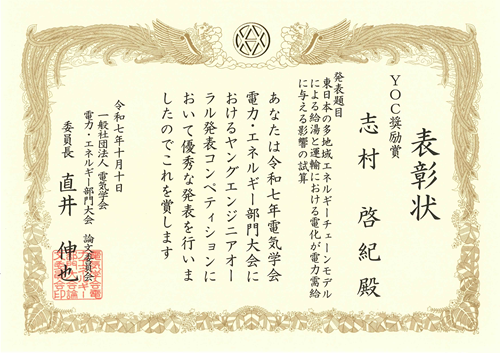 表彰状
YOC奨励賞
志村 啓紀 殿
発表題目
東日本の多地域エネルギーチェーンモデル
による給湯と運輸における電化が電力需給
に与える影響の試算
あなたは令和七年電気学会
電力・エネルギー部門大会に
おけるヤングエンジニアオー
ラル発表コンペティションに
おいて優秀な発表を行いま
したのでこれを賞します
令和七年十月十日
一般社団法人 電気学会
電力・エネルギー部門大会 論文委員会
委員長 直井 伸也